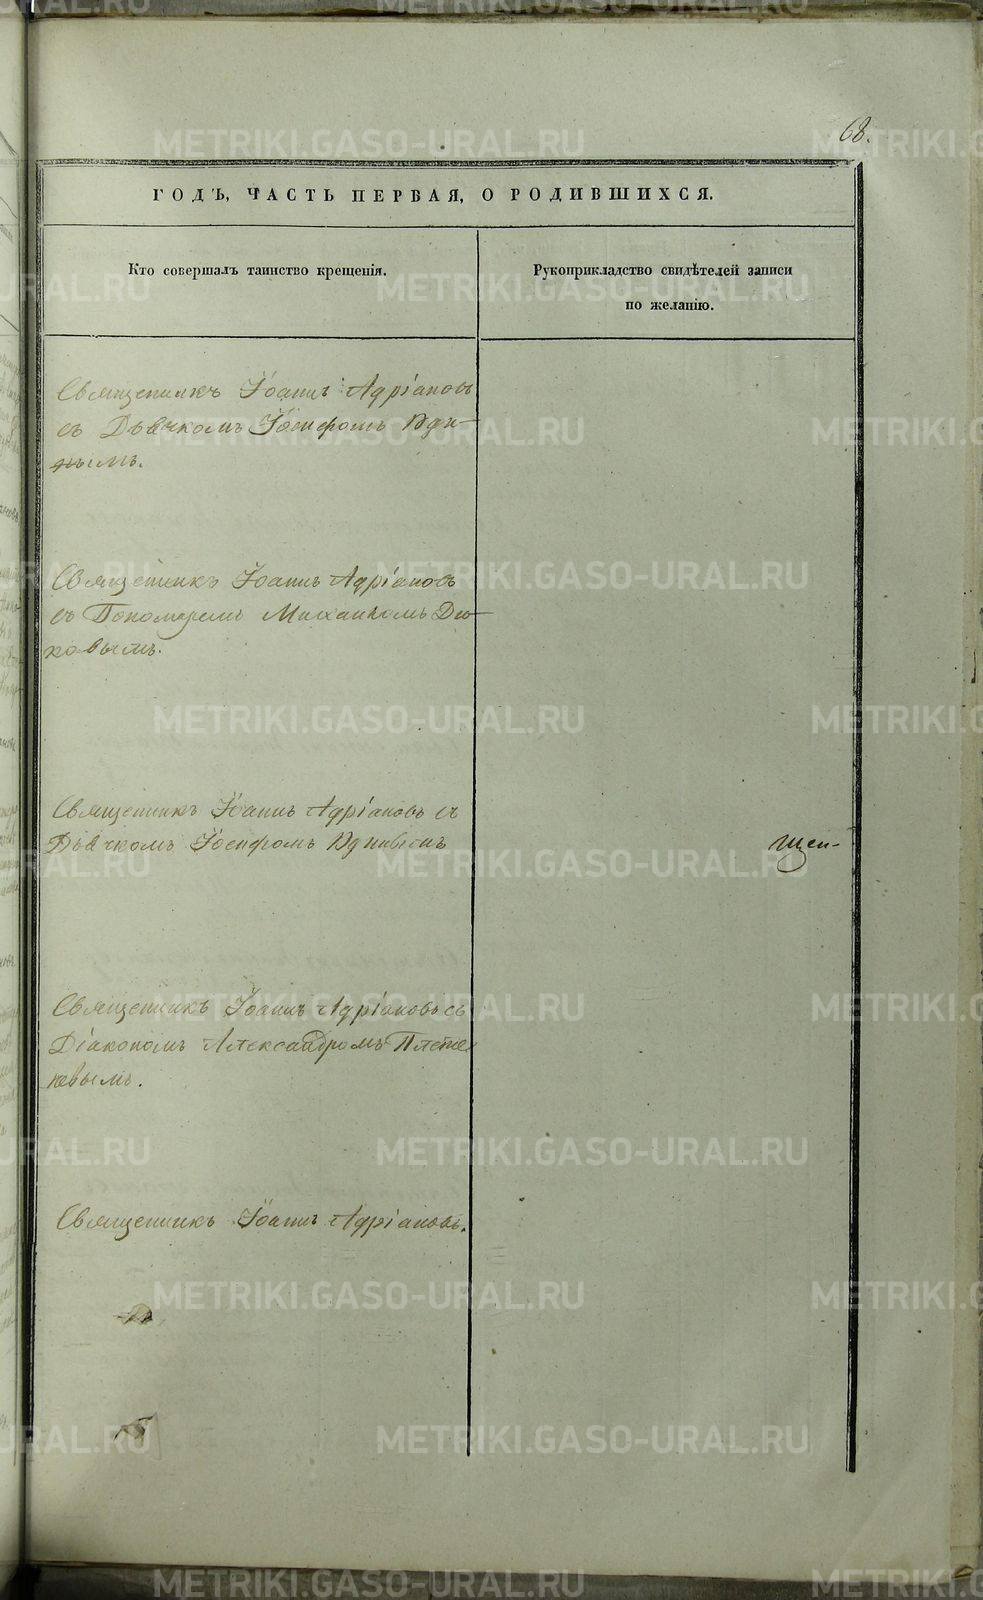 68.
ГОДЪ, ЧАСТЬ ПЕРВАЯ, О РОДИВШИХСЯ.
Кто совершалъ таинство крещенія.
Рукоприкладство свидѣтелей записи
по желанію.
Священникъ Іоаннъ Адріановъ
съ Дьячкомъ Іосифомъ
Священникъ Іоаннъ Адріановъ
съ Пономаремъ Михаиломъ Ды-
ковымъ.
Священникъ Іоаннъ Адріановъ съ
Дьячкомъ Іосифомъ
щен-
Священникъ Іоаннъ Адріановъ съ
Діакономъ Александромъ Плете-
невымъ.
Священникъ Іоаннъ Адріановъ.
METRIKI.GASO-URAL.RU